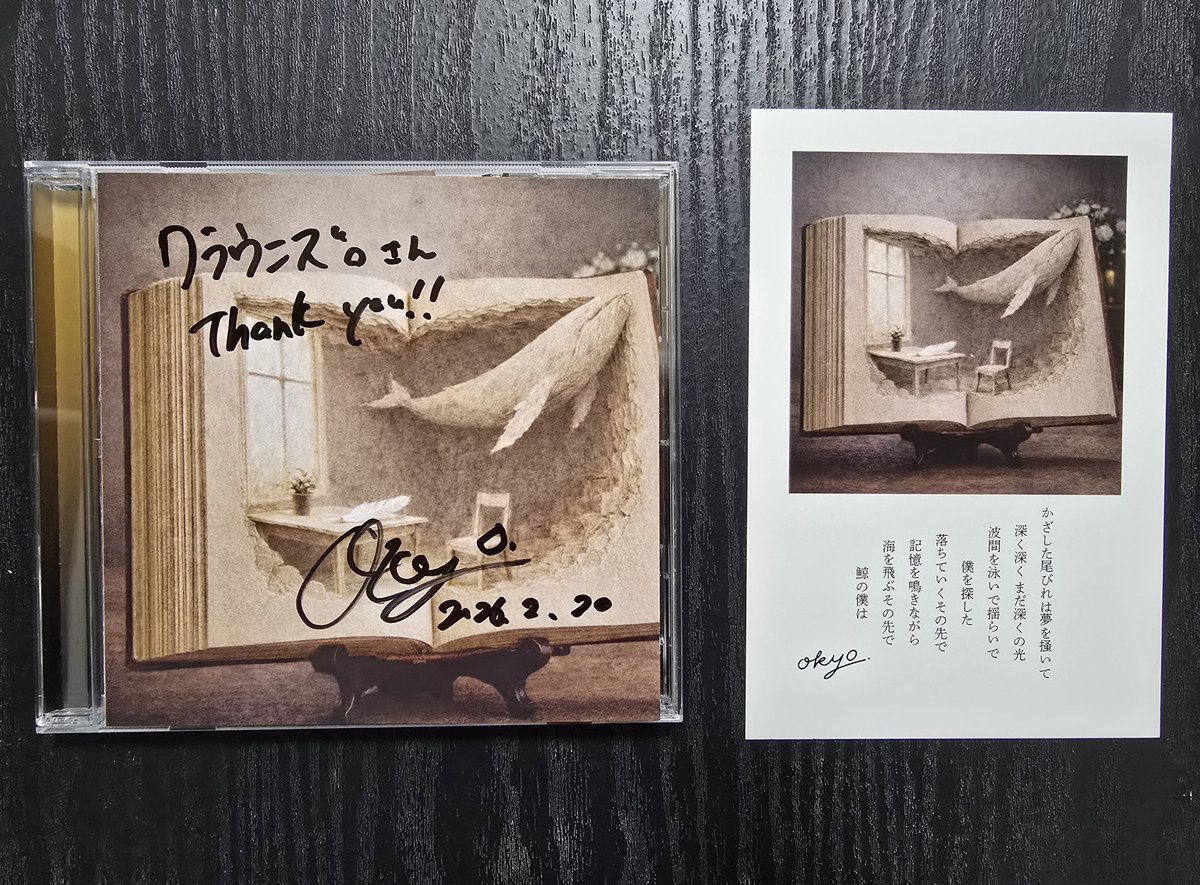 さん
Thank you!!
Okyo.
2026. 2. 20
かざした尾びれは夢を掻いて
深く深くまだ深くの光
波間を泳いで揺らいで
僕を探した
落ちていくその先で
記憶を鳴きながら
海を飛ぶその先で
鯨の僕は
okyo.